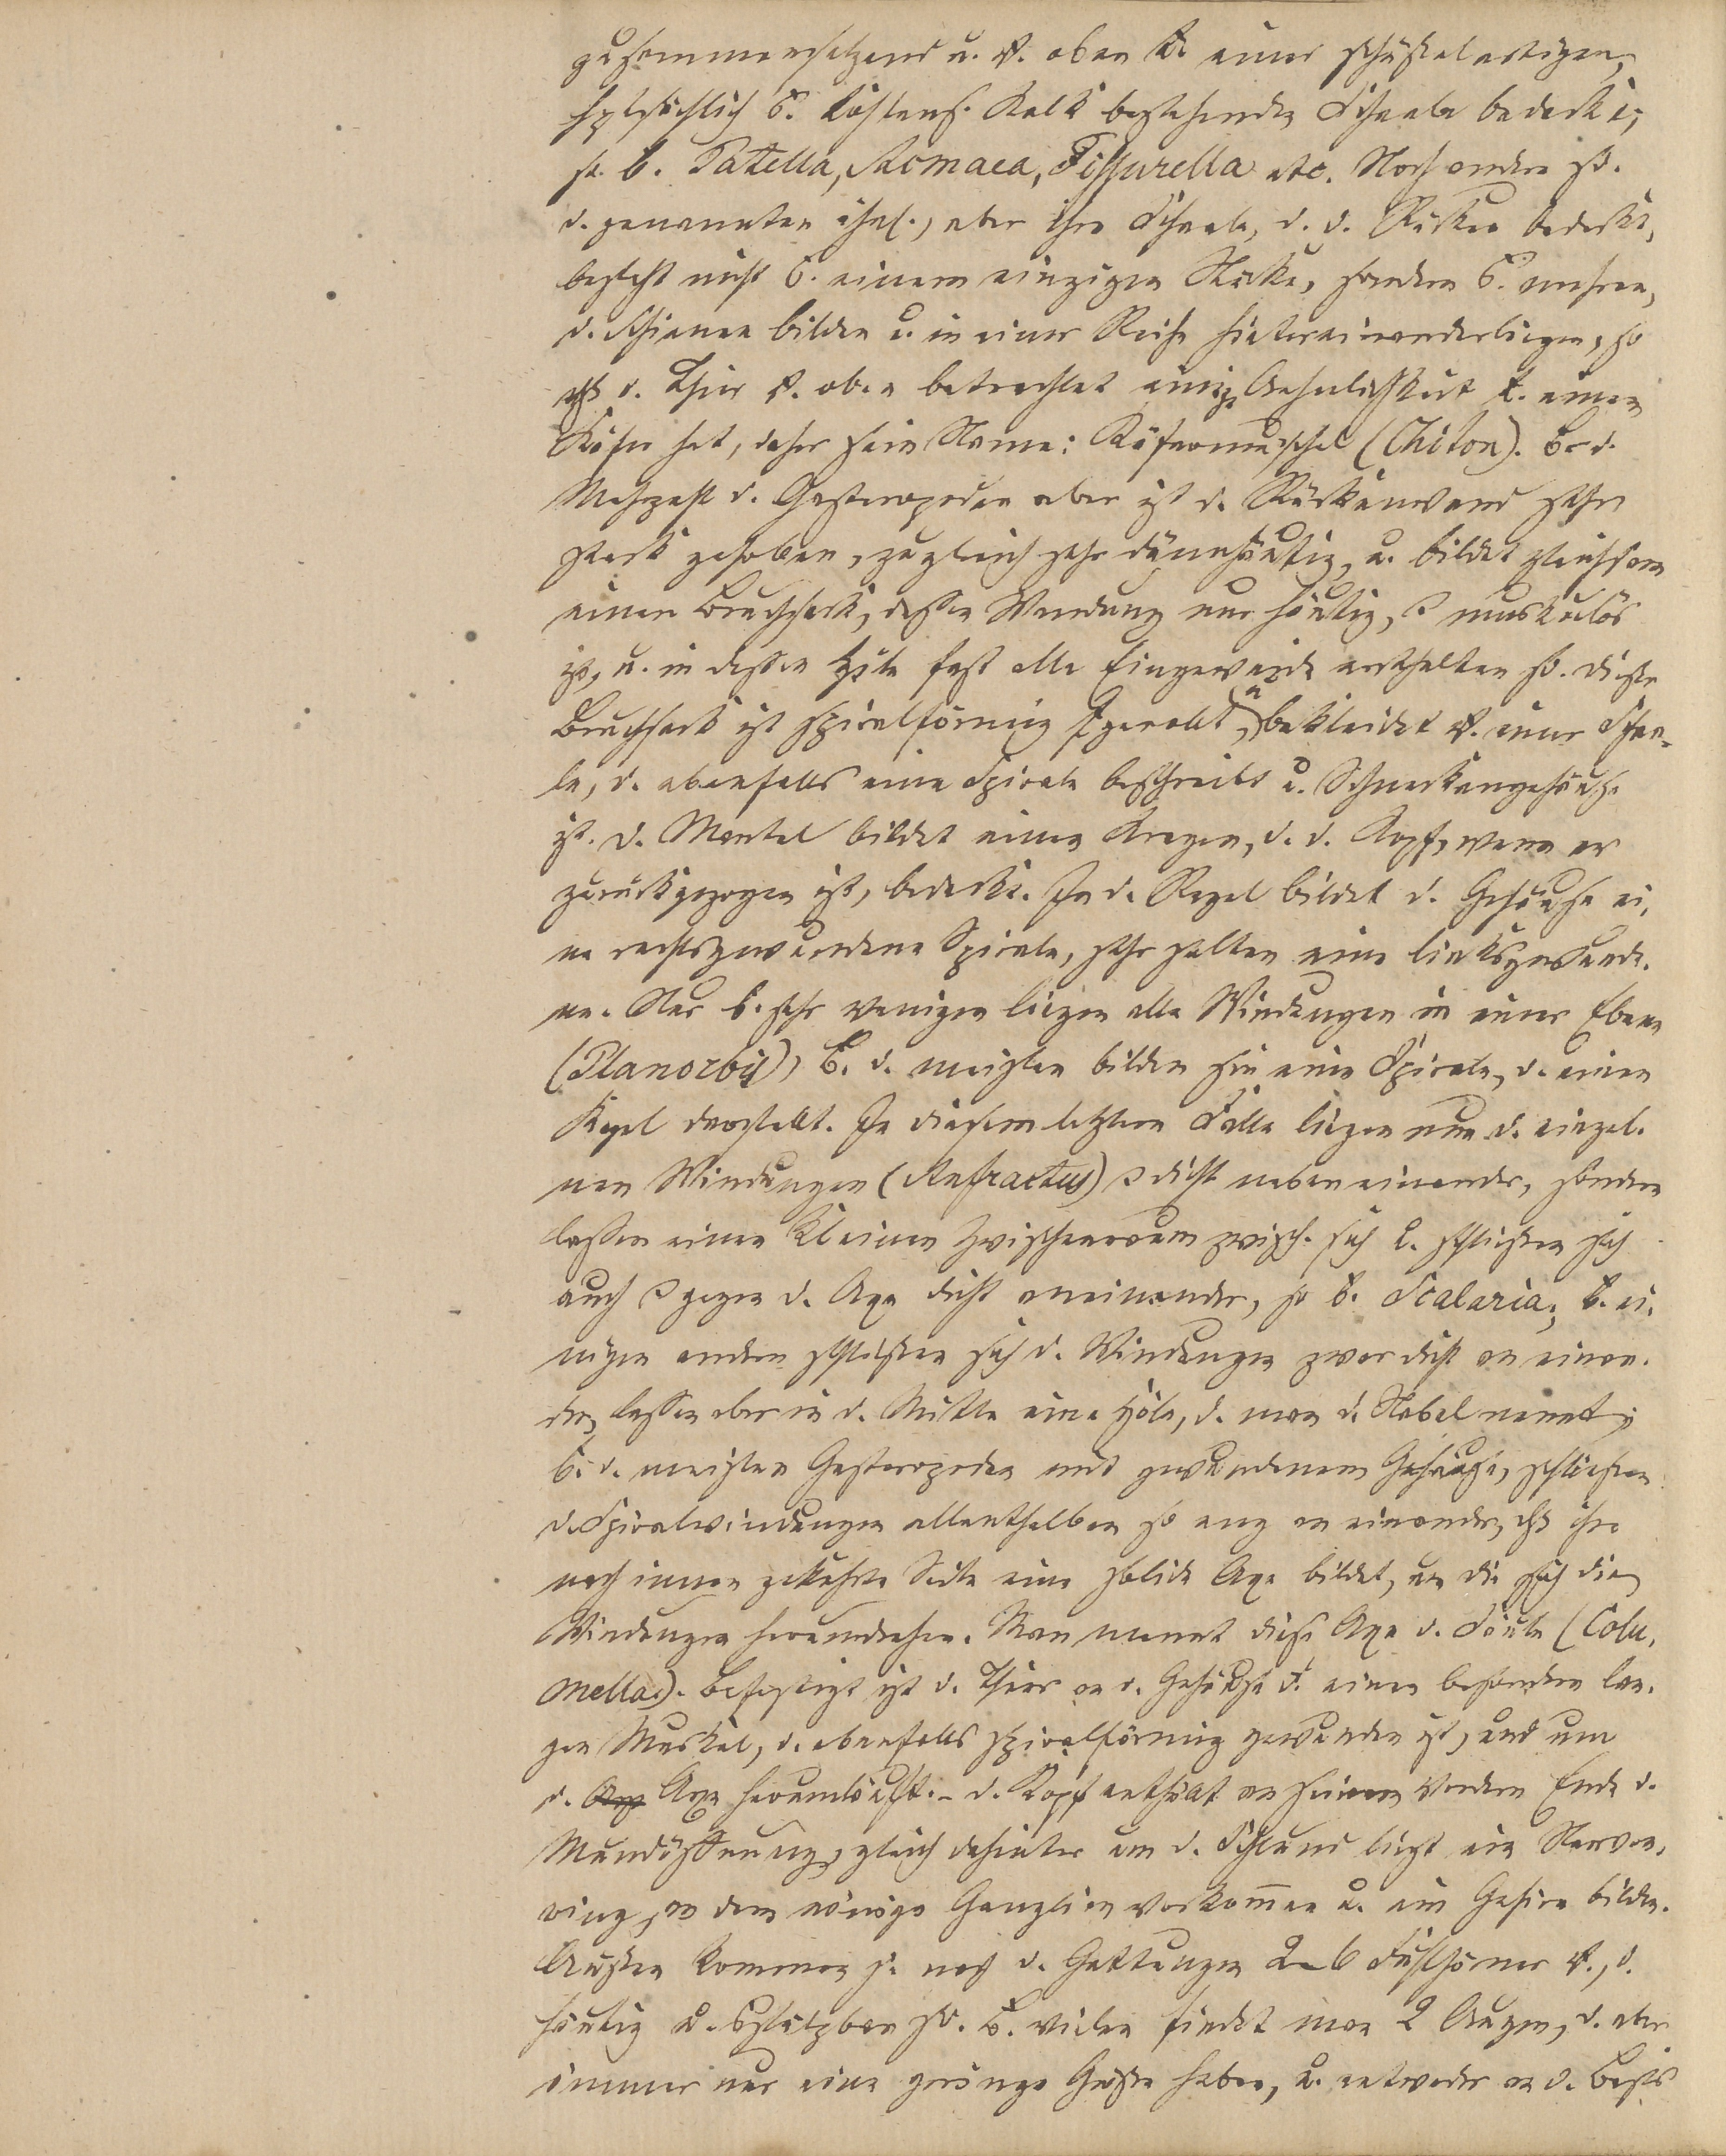 zusammensetzend u. v. oben v. einer schüsselartigen,
hptsächlich v. kohlens. Kalk bestehenden Schaale bedeckt;
so b. Patella, Acmaea, Fissurella etc. Noch andre sd.
d. genannten ähnl., aber ihre Schaale, d. d. Rücken bedeckt,
besteht nicht a. einem einzigen Stücke, sondern a. mehren,
d. Schienen bilden u. in einer Reihe hintereinanderliegen, so
dß d. Thier v. oben betrachtet einige Aehnlichkeit m. einem
Käfer hat, daher sein Name: Käfermuschel (Chiton). Bei d.
Mehrzahl d. Gasteropoden aber ist d. Rückenwand sehr
stark gehoben, zugleich sehr dünnhäutig, u. bildet gleichsam
einen Bruchsack, dessen Wandung nur häutig, nicht muskulös
ist, u. in dessen Höle fast alle Eingeweide enthalten sd. Dieser
Bruchsack ist spiralförmig gerollt, u. bekleidet v. einer Schaa-
le, d. ebenfalls eine Spirale beschreibt u. Schneckengehäuse
ist. D. Mantel bildet einen Kragen, d. d. Kopf, wenn er
zurückgezogen ist, bedeckt. In d. Regel bildet d. Gehäuse ei-
ne rechtsgewundene Spirale, sehr selten eine linksgewunde-
ne. Nur b. sehr wenigen liegen alle Windungen in einer Ebene
(Planorbis), b. d. meisten bilden sie eine Spirale, d. einen
Kegel darstellt. In diesem letztern Falle liegen nun d. einzel-
nen Windungen (Anfractus) nicht dicht neben einander, sondern
lassen einen kleinen Zwischenraum zwisch. sich u. schließen sich
auch nicht gegen d. Axe dicht aneinander, so b. Scalaria; b. ei-
nigen andern schließen sich d. Windungen zwar dicht an einan-
der, lassen aber in d. Mitte eine Höle, d. man d. Nabel nennt;
b. d. meisten Gasteropoden mit gewundenem Gehäuse, schließen
d. Spiralwindungen allenthalben so eng an einander, dß ihre
nach innen gekehrte Seite eine solide Axe bildet, um die sich die
Windungen herumdrehen. Man nennt diese Axe d. Säule (Colu-
mella). Befestigt ist d. Thier an d. Gehäuse d. einen besondern lan-
gen Muskel, d. ebenfalls spiralförmig gewunden ist, und um
d. Axe herumläuft. – D. Kopf enthält an seinem vordern Ende d.
Mundöffnung, gleich dahinter um d. Schlund liegt ein Nerven-
ring, an dem einige Ganglien vorkommen u. ein Gehirn bilden.
Außen kommen je nach d. Gattungen 2–6 Fühlhörner v., d.
häutig u. sd. B. vielen findet man 2 Augen, d. aber
immer nur eine geringe Größe haben, u. entweder an d. Basis